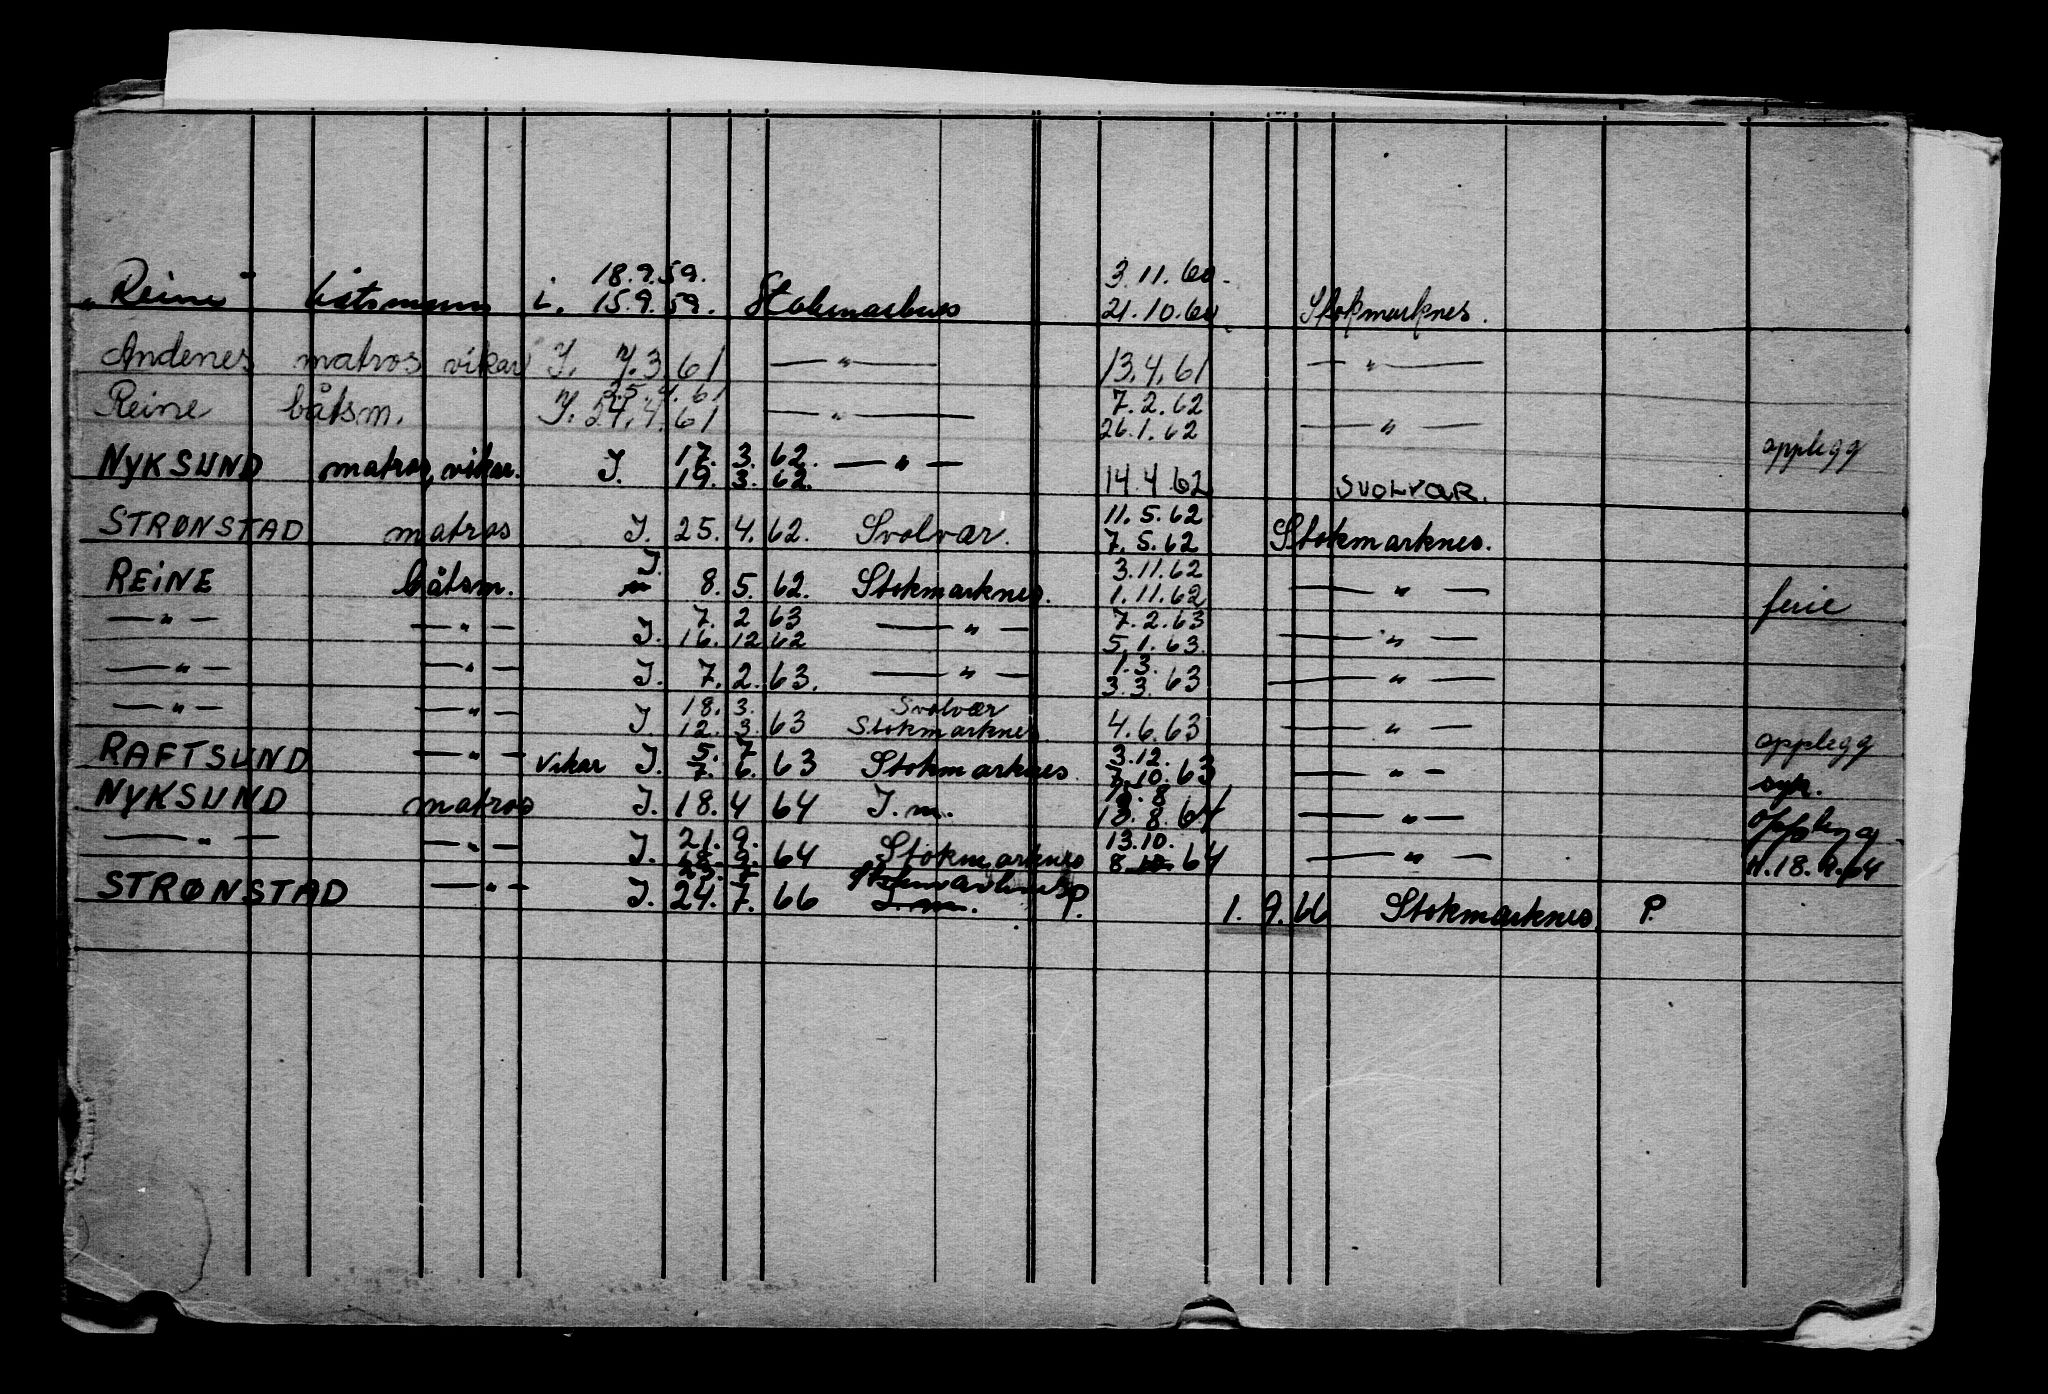 18.9.59. 3.11.60.
„Reine" båtsmann i. 15.9.59. Stokmarknes 21.10.60 Stokmarknes.
Andenes matros vikar J. 7.3.61 — " — 13.4.61 — " —
25.4.61 7.2.62
Reine båtsm. J. 24.4.61 — " — 26.1.62 — " — opplegg
17. 3. 62.
NYKSUND matros, vikar. J. 19. 3. 62. — " — 14.4.62 SVOLVÆR.
11.5.62
STRØNSTAD matros J. 25. 4. 62. Svolvær. 7.5.62 Stokmarknes.
J. 3.11.62
REINE båtsm. 8. 5. 62. Stokmarknes. 1.11.62 — " — ferie
7. 2 63 7.2.63
— " — — " — J. 16. 12 62 — " — 5.1.63. — " —
1.3.
— " — — " — J. 7. 2. 63. — " — 3.3.63 — " —
18. 3. Svolvær
— " — — " — J. 12. 3. 63 Stokmarknes. 4.6.63 — " — opplegg
5. 7 3.12.
RAFTSUND — " — vikar J. 7. 6. 63 Stokmarknes 7.10.63 — " — syk.
NYKSUND matros J. 18. 4 64 J. m. 13.8.64 — " — opplegg
21. 9. 13.10.
— " — — " — J. 18. 9. 64 Stokmarknes 8.10.64 — " — H.18.4.64
25. 7 Stokmarknes
STRØNSTAD — " — J. 24. 7. 66 J. m. P. 1. 9. 66 Stokmarknes P.